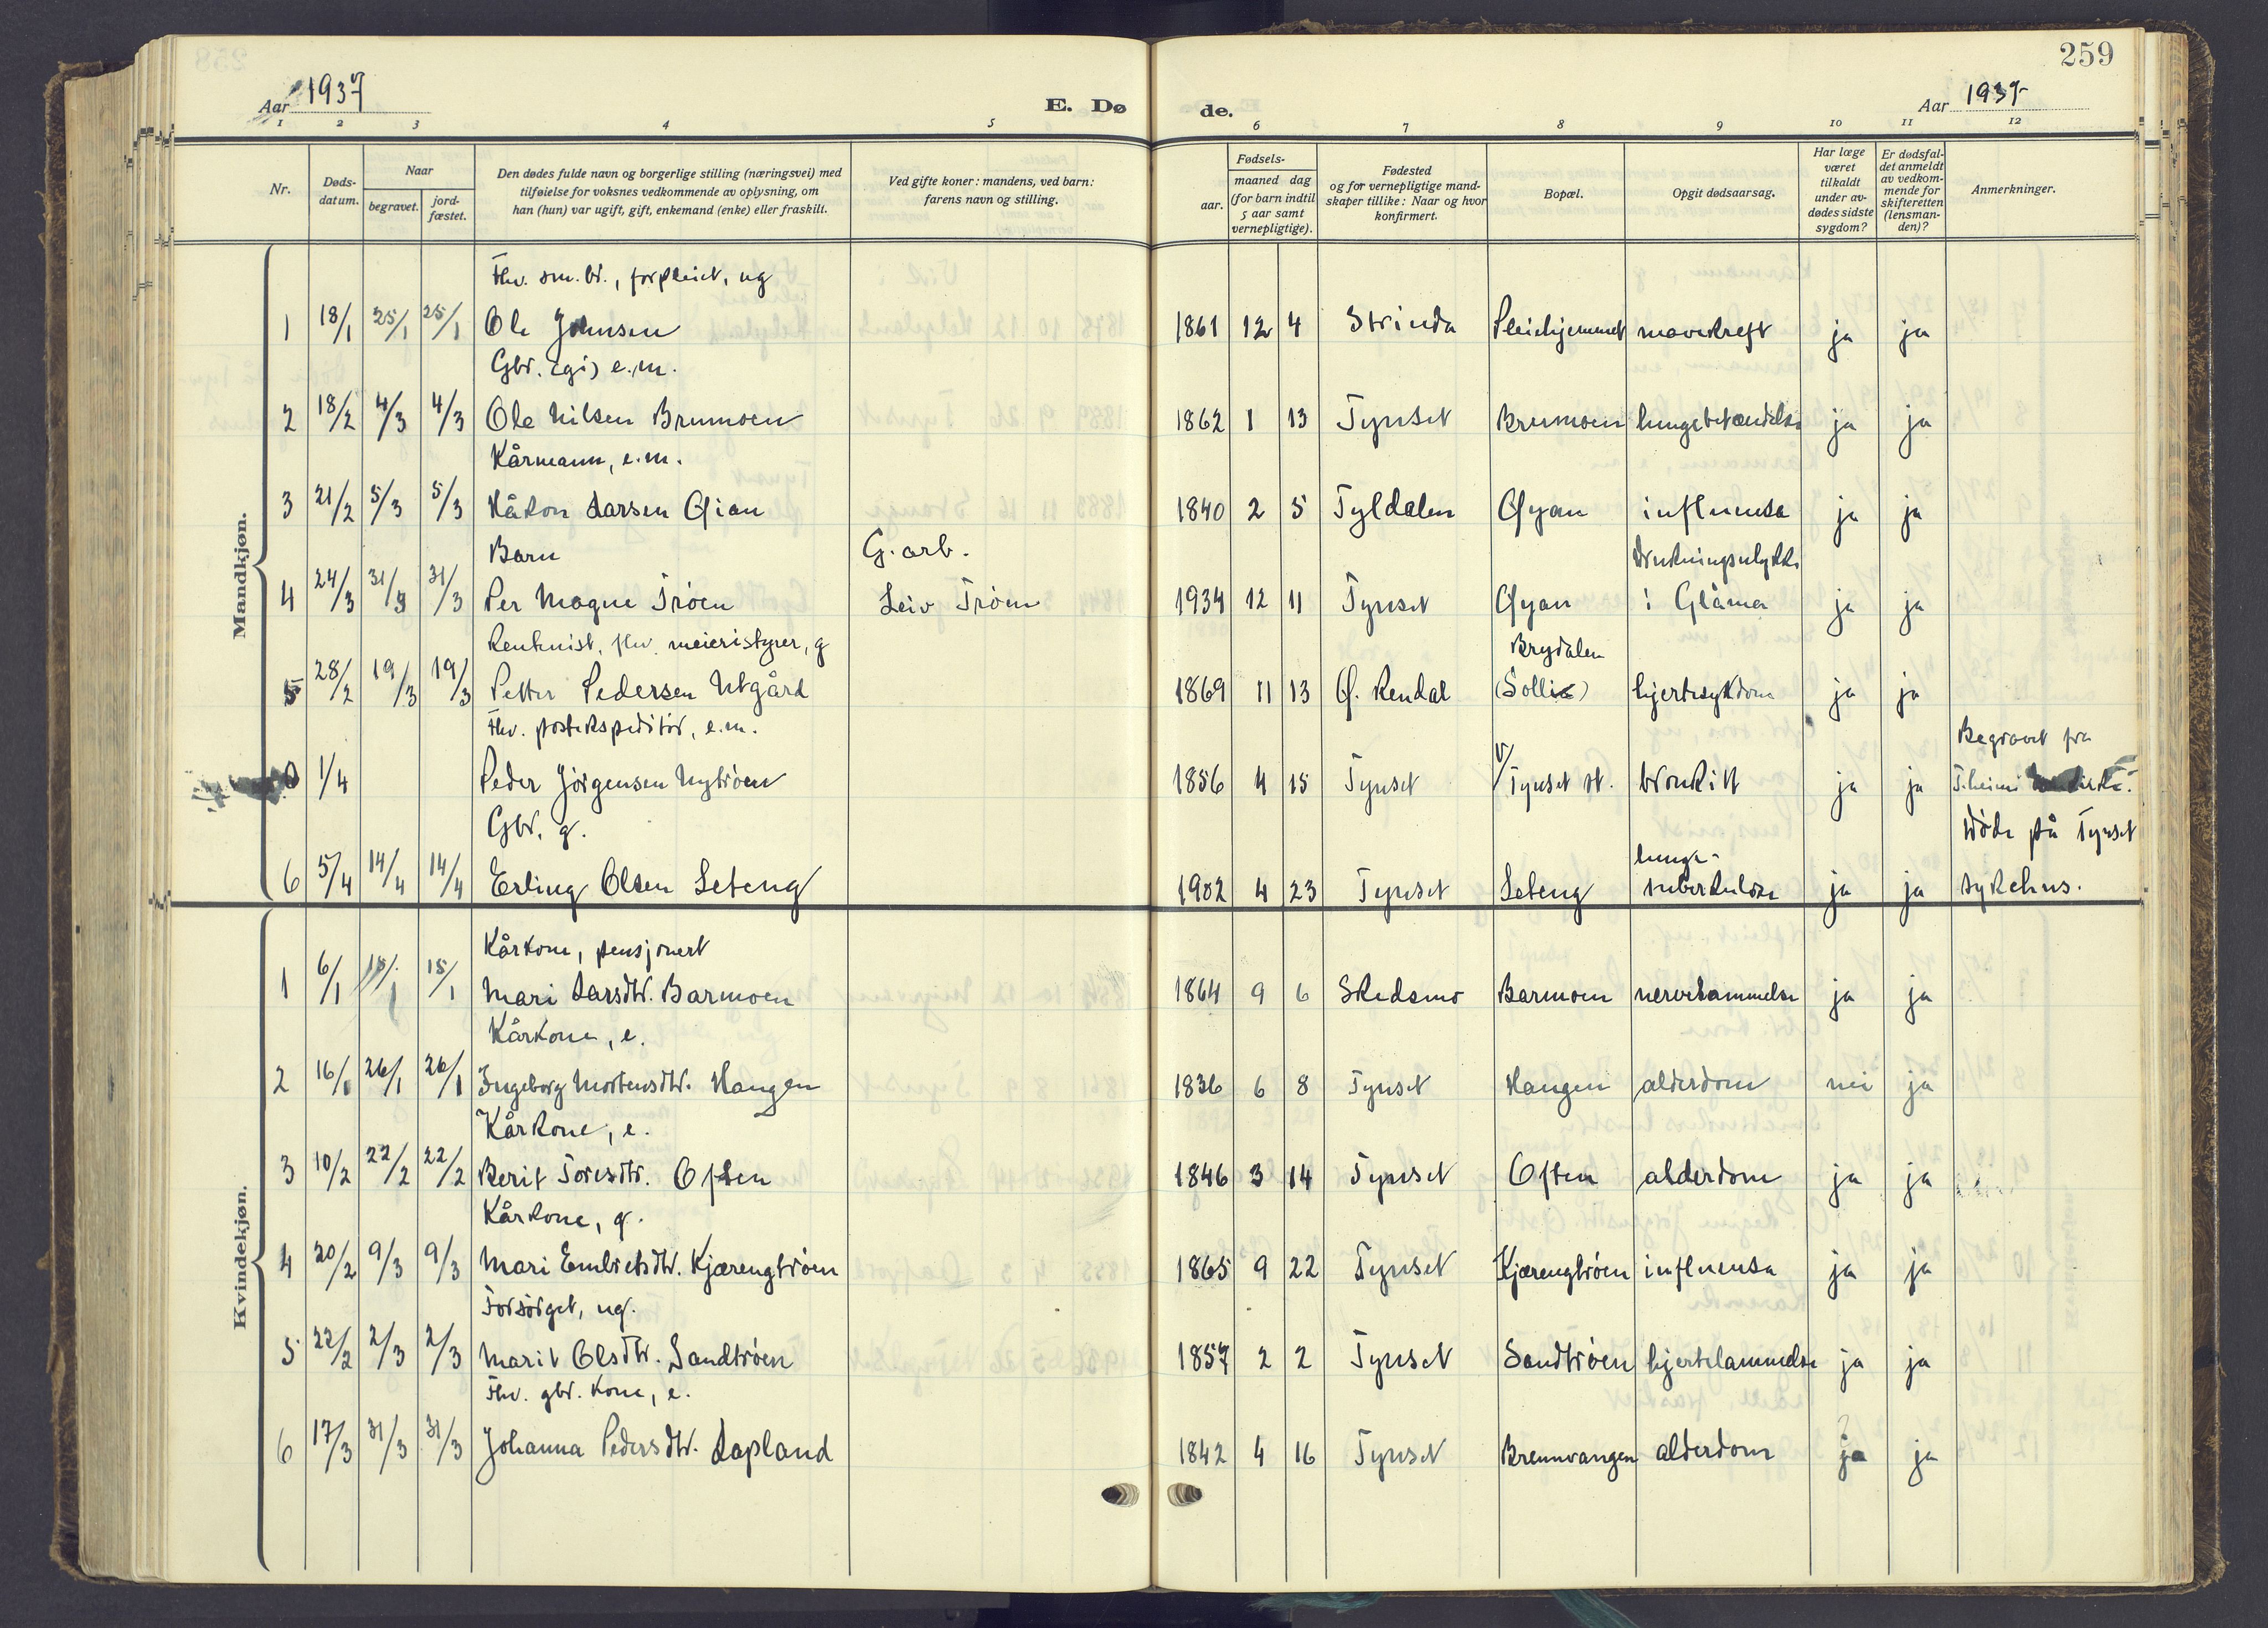 259
Aar 1937
E. Dø
de.
Aar 1937
1 2 3 4 5 6 7 8 9 10 11 12
Nr.
Døds-
datum.
Naar
begravet.
jord-
fæstet.
Den dødes fulde navn og borgerlige stilling (næringsvei) med
tilføielse for voksnes vedkommende av oplysning, om
han (hun) var ugift, gift, enkemand (enke) eller fraskilt.
Ved gifte koner: mandens, ved barn:
farens navn og stilling.
Fødsels-
aar.
maaned dag
(for barn indtil
5 aar samt
vernepligtige).
Fødested
og for vernepligtige mand-
skaper tillike: Naar og hvor
konfirmert.
Bopæl.
Opgit dødsaarsag.
Har læge
været
tilkaldt
under av-
dødes sidste
sygdom?
Er dødsfal-
det anmeldt
av vedkom-
mende for
skifteretten
(lensman-
den)?
Anmerkninger.
Mandkjøn.
Fhv. sm.br., forpleiet, ug
1 18/1 25/1 25/1 Ole Johnsen 1861 12 4 Strinda Pleiehjemmet mavekreft ja ja
Gbr. (gi) e.m.
2 18/2 4/3 4/3 Ole Nilsen Brumoen 1862 1 13 Tynset Brumoen lungebetændelse ja ja
Kårmann, e.m.
3 21/2 5/3 5/3 Håkon Larsen Øian 1840 2 5 Tyldalen Øyan influensa ja ja
Barn G. arb. drukningsulykke
4 24/3 31/3 31/3 Per Magne Trøen Leiv Trøen 1934 12 11 Tynset Øyan i Glåma ja ja
Rentenist, fhv. meieristyrer, g Brydalen
5 28/2 19/3 19/3 Petter Pedersen Utgård 1869 11 13 Ø. Rendal (Sollia) hjertesykdom ja ja
Fhv. postekspeditør, e.m. Begravet fra
0 1/4 Peder Jørgensen Nytrøen 1856 4 15 Tynset v/ Tynset st. bronkitt ja ja
Gbr, g. Døde på Tynset
6 5/4 14/4 14/4 Erling Olsen Leteng 1902 4 23 Tynset Leteng lunge-
tuberkulose ja ja sykehus.
Kvindekjøn.
Kårkone, pensjonert
1 6/1 15/1 15/1 Mari Larsdtr. Barmoen 1864 9 6 Skedsmo Barmoen nervelammelse ja ja
Kårkone, e.
2 16/1 26/1 26/1 Ingeborg Mortensdtr. Haugen 1836 6 8 Tynset Haugen alderdom nei ja
Kårkone, e.
3 10/2 22/2 22/2 Berit Toresdtr. Ofsten 1846 3 14 Tynset Often alderdom ja ja
Kårkone, g.
4 20/2 9/3 9/3 Mari Embretsdtr. Kjærengtrøen 1865 9 22 Tynset Kjærengtrøen influensa ja ja
Forsørget, ug.
5 22/2 2/3 2/3 Marit Olsdtr. Sandtrøen 1857 2 2 Tynset Sandtrøen hjertelammelse ja ja
Fhv. gbr. kone, e.
6 17/3 31/3 31/3 Johanna Pedersdtr. Lapland 1842 4 16 Tynset Brennvangen alderdom ja ja